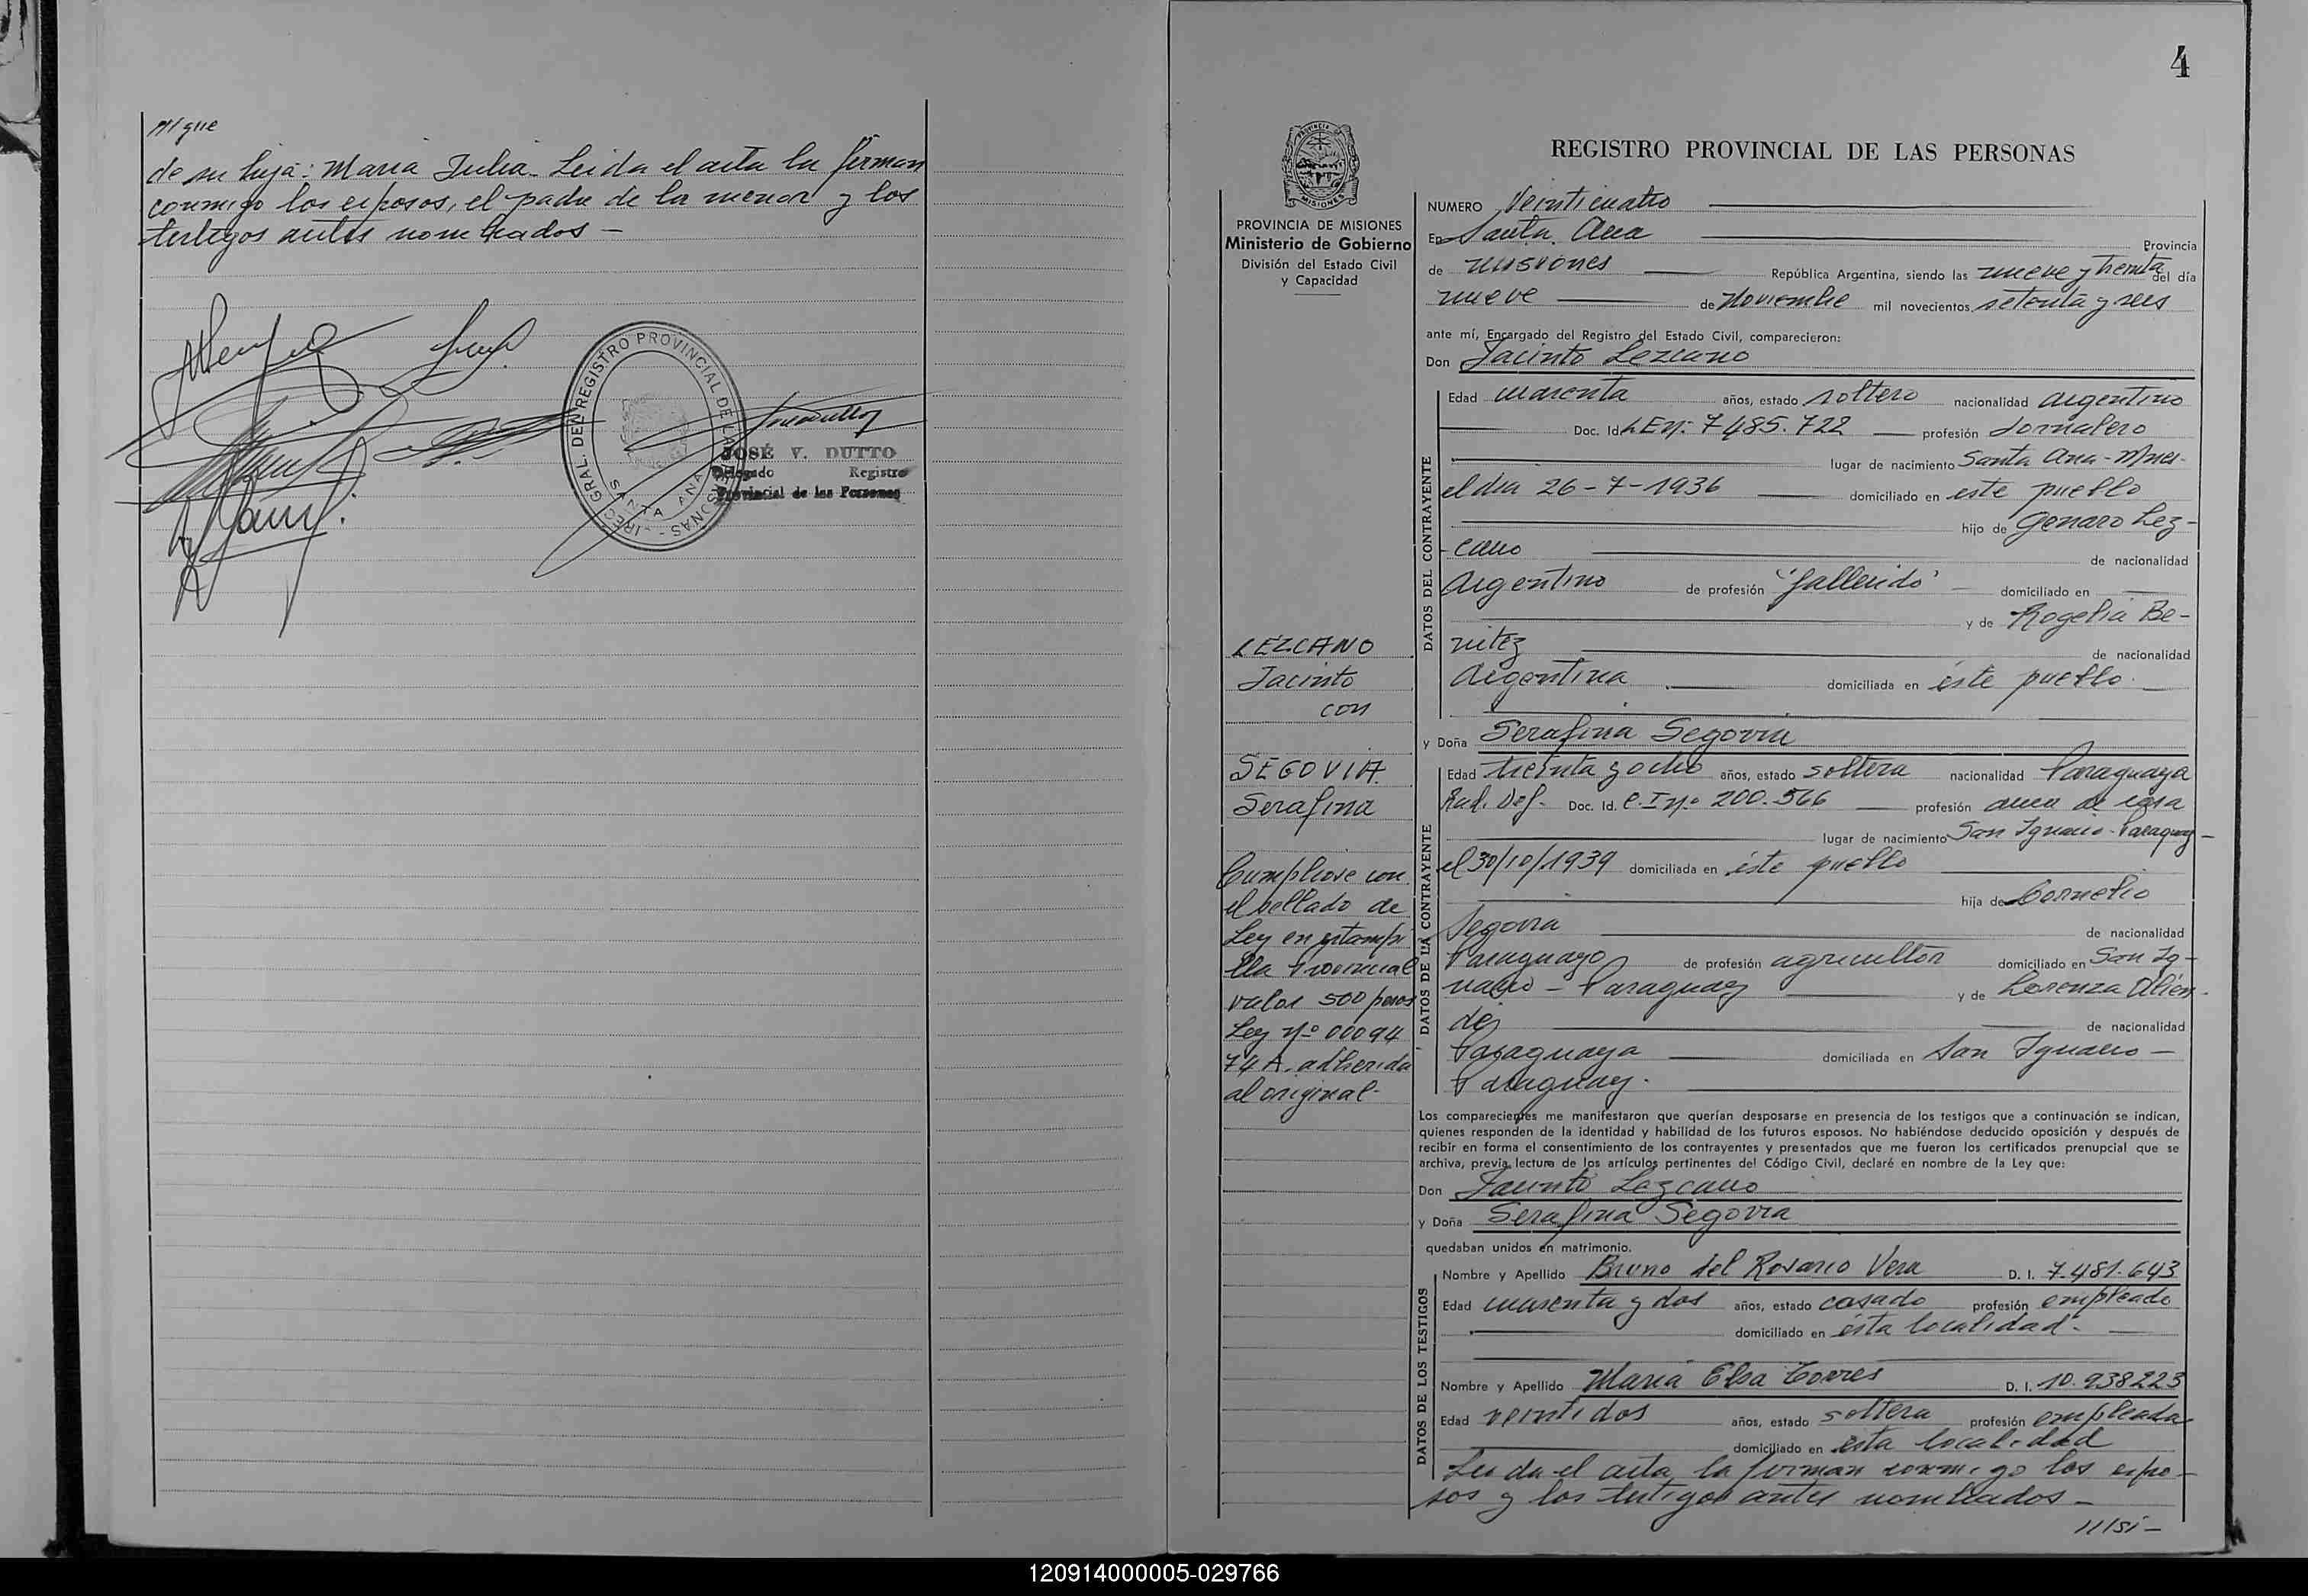 sigue
de su hija: María Julia. Leida el acta la firman
conmigo los esposos, el padre de la menor y los
testigos antes nombrados —
DIREC. GRAL. DEL REGISTRO PROVINCIAL DE LAS PERSONAS -
SANTA ANA
JOSÉ V. DUTTO
Delegado Registro
Provincial de las Personas
4
PROVINCIA DE MISIONES
Ministerio de Gobierno
División del Estado Civil
y Capacidad
LEZCANO
Jacinto
con
SEGOVIA
Serafina
Cumpliose con
el sellado de
Ley en estampi
lla Provincial
valor 500 pesos
Ley Nº 00094
74 A. adherida
al original-
REGISTRO PROVINCIAL DE LAS PERSONAS
NUMERO Veinticuatro
En Santa Ana Provincia
de Misiones República Argentina, siendo las nueve y treinta del día
nueve de Noviembre mil novecientos setenta y seis
ante mí, Encargado del Registro del Estado Civil, comparecieron:
Don Jacinto Lezcano
DATOS DEL CONTRAYENTE
Edad cuarenta años, estado soltero nacionalidad argentino
Doc. Id. L E Nº 7485.722 profesión Jornalero
lugar de nacimiento Santa Ana - Mnes-
el dia 26-7-1936 domiciliado en este pueblo
hijo de Genaro Lez-
cano de nacionalidad
Argentino de profesión "fallecido" domiciliado en
y de Rogelia Be-
nitez de nacionalidad
Argentina domiciliada en éste pueblo.
y Doña Serafina Segovia
DATOS DE LA CONTRAYENTE
Edad treinta y ocho años, estado soltera nacionalidad Paraguaya
Rad. Def. Doc. Id. C.I Nº 200.566 profesión ama de casa
lugar de nacimiento San Ignacio-Paraguay-
el 30/10/1939 domiciliada en éste pueblo
hija de Cornelio
Segovia de nacionalidad
Paraguayo de profesión agricultor domiciliado en San Ig-
nacio - Paraguay y de Lorenza
de nacionalidad
Paraguaya domiciliada en San Ignacio -
Paraguay.
Los comparecientes me manifestaron que querían desposarse en presencia de los testigos que a continuación se indican,
quienes responden de la identidad y habilidad de los futuros esposos. No habiéndose deducido oposición y después de
recibir en forma el consentimiento de los contrayentes y presentados que me fueron los certificados prenupcial que se
archiva, previa lectura de los artículos pertinentes del Código Civil, declaré en nombre de la Ley que:
Don Jacinto Lezcano
y Doña Serafina Segovia
quedaban unidos en matrimonio.
DATOS DE LOS TESTIGOS
Nombre y Apellido Bruno del Rosario Vera D. I. 7.481.643
Edad cuarenta y dos años, estado casado profesión empleado
domiciliado en ésta localidad.
Nombre y Apellido María Elsa Torres D. I. 10.938223
Edad veintidos años, estado soltera profesión empleada
domiciliado en ésta localidad
Leida el acta la firman conmigo los espo-
sos y los testigos antes nombrados -
120914000005-029766